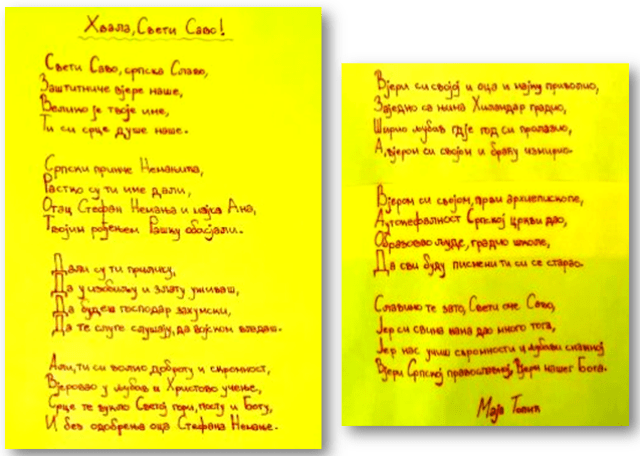 Хвала, Свети Саво!
Свети Саво, српска Славо,
Заштитниче вјере наше,
Велико је твоје име,
Ти си срце душе наше.
Српски принче Немањића,
Растко су ти име дали,
Отац Стефан Немања и мајка Ана,
Твојим рођењем Рашку обасјали.
Дали су ти прилику,
Да у изобиљу и злату уживаш,
Да будеш господар захумски,
Да те слуге слушају, да војском владаш.
Али, ти си волио доброту и скромност,
Вјеровао у љубав и Христово учење,
Срце те вукло Светој гори, посту и Богу,
И без одобрења оца Стефана Немање.
Вјери си својој и оца и мајку приволио,
Заједно са њима Хиландар градио,
Ширио љубав гдје год си пролазио,
А, вјером си својом и браћу измирио.
Вјером си својом, први архиепископе,
Аутокефалност Српској цркви дао,
Образовао људе, градио школе,
Да сви буду писмени ти си се старао.
Славимо те зато, Свети оче Саво,
Јер си свима нама дао много тога,
Јер нас учиш скромности и љубави снажној
Вјери Српској православној, Вјери нашег Бога.
Маја Топић